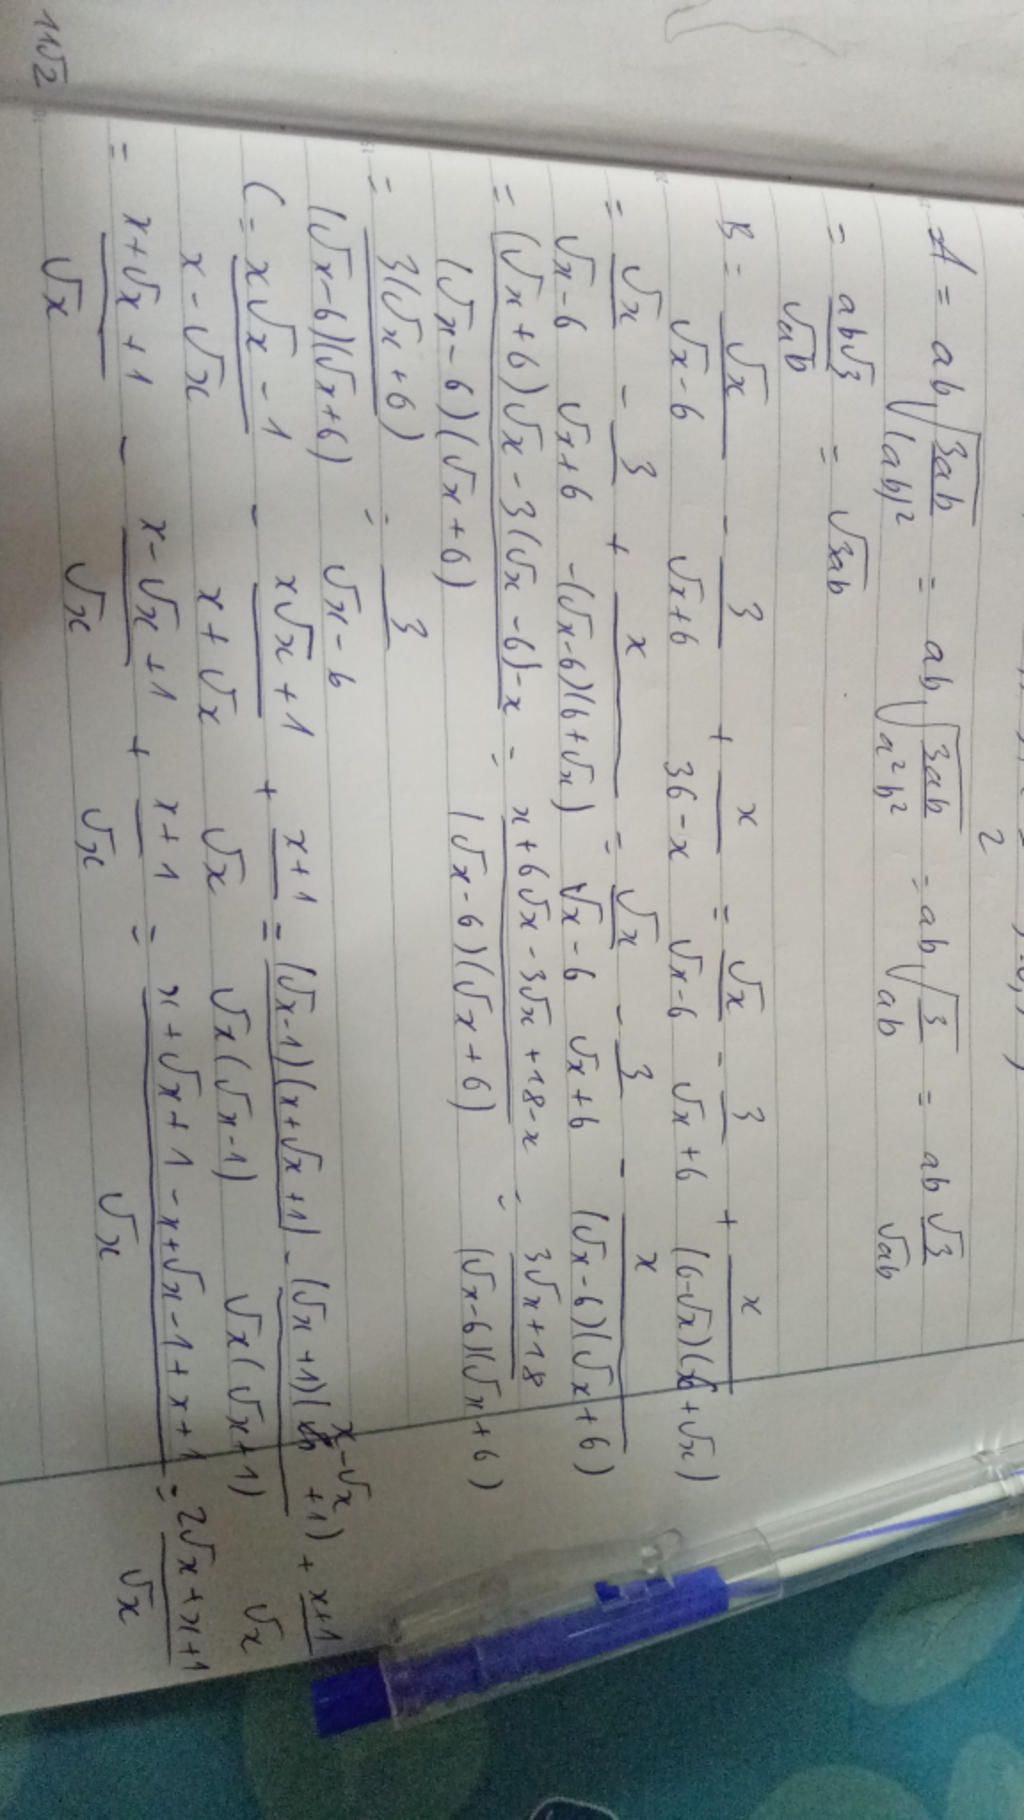 2
A = ab√(3ab/(ab)²) = ab√(3ab/a²b²) = ab√(3/ab) = ab √3/√ab
= ab√3/√ab = √3ab
B = √x/(√x-6) - 3/(√x+6) + x/(36-x) = √x/(√x-6) - 3/(√x+6) + x/((6-√x)(6+√x))
= √x/(√x-6) - 3/(√x+6) + x/(-(√x-6)(6+√x)) = √x/(√x-6) - 3/(√x+6) - x/((√x-6)(√x+6))
= ((√x+6)√x-3(√x-6)-x)/((√x-6)(√x+6)) = (x+6√x-3√x+18-x)/((√x-6)(√x+6)) = (3√x+18)/((√x-6)(√x+6))
= 3(√x+6)/((√x-6)(√x+6)) = 3/(√x-6)
C = (x√x-1)/(x-√x) - (x√x+1)/(x+√x) + (x+1)/√x = (√x-1)(x+√x+1)/(√x(√x-1)) - (√x+1)(x-√x+1)/(√x(√x+1)) + (x+1)/√x
= (x+√x+1)/√x - (x-√x+1)/√x + (x+1)/√x = (x+√x+1-x+√x-1+x+1)/√x = (2√x+x+1)/√x
11√2